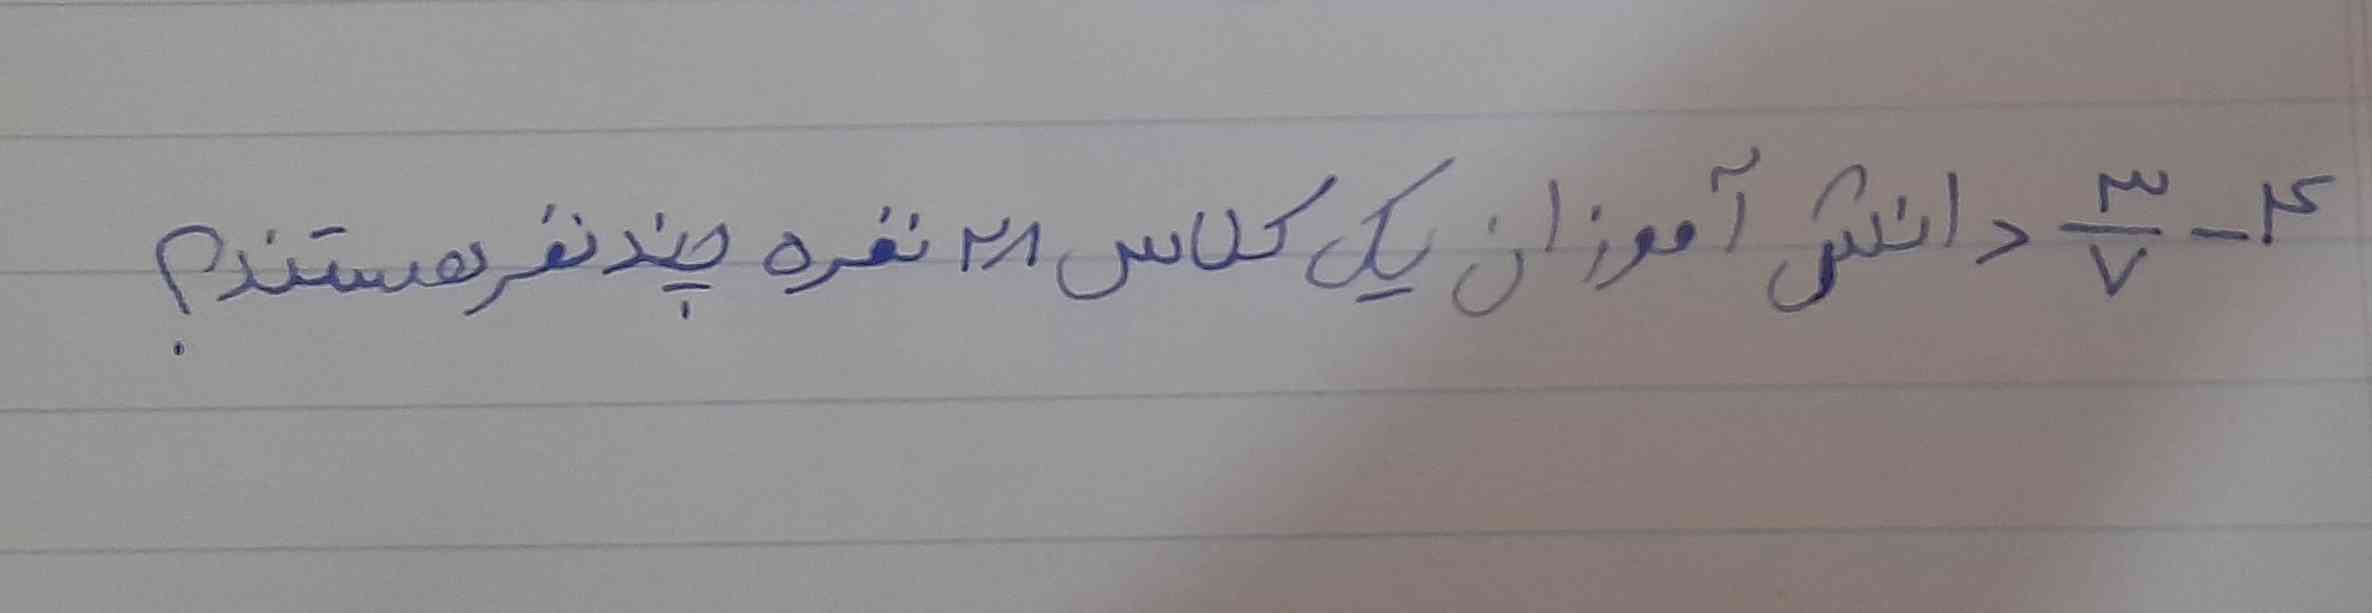 ۴- ۳/۷ دانش آموزان یک کلاس ۲۸ نفره چند نفر هستند؟